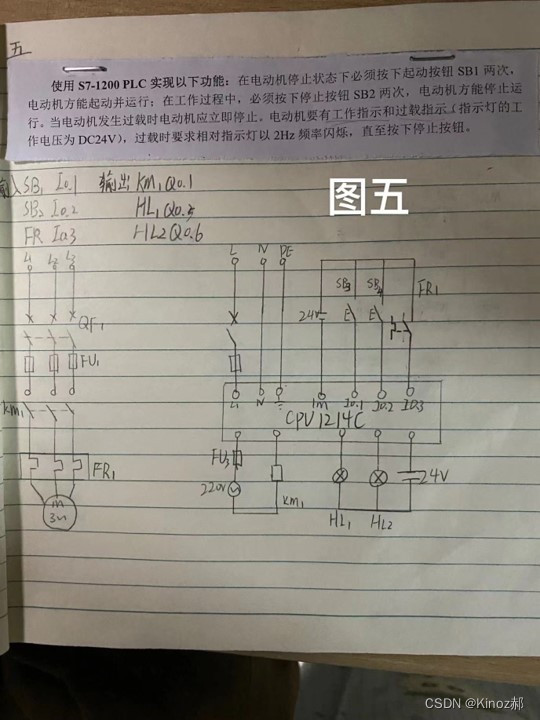 五
使用 S7-1200 PLC 实现以下功能：在电动机停止状态下必须按下起动按钮 SB1 两次，
电动机方能起动并运行；在工作过程中，必须按下停止按钮 SB2 两次，电动机方能停止运
行。当电动机发生过载时电动机应立即停止。电动机要有工作指示和过载指示（指示灯的工
作电压为 DC24V），过载时要求相对指示灯以 2Hz 频率闪烁，直至按下停止按钮。
输入 SB1 I0.1 输出 KM1 Q0.1
SB2 I0.2 HL1 Q0.5
FR I0.3 HL2 Q0.6
图五
L1 L2 L3 L N PE
SB3 SB4 FR1
QF1 24V E E
FU1
L1 N 1M I0.1 I0.2 I0.3
KM1 CPU1214C
FR1 FU3 24V
220V KM1
M 3~ HL1 HL2
CSDN @Kinoz郝